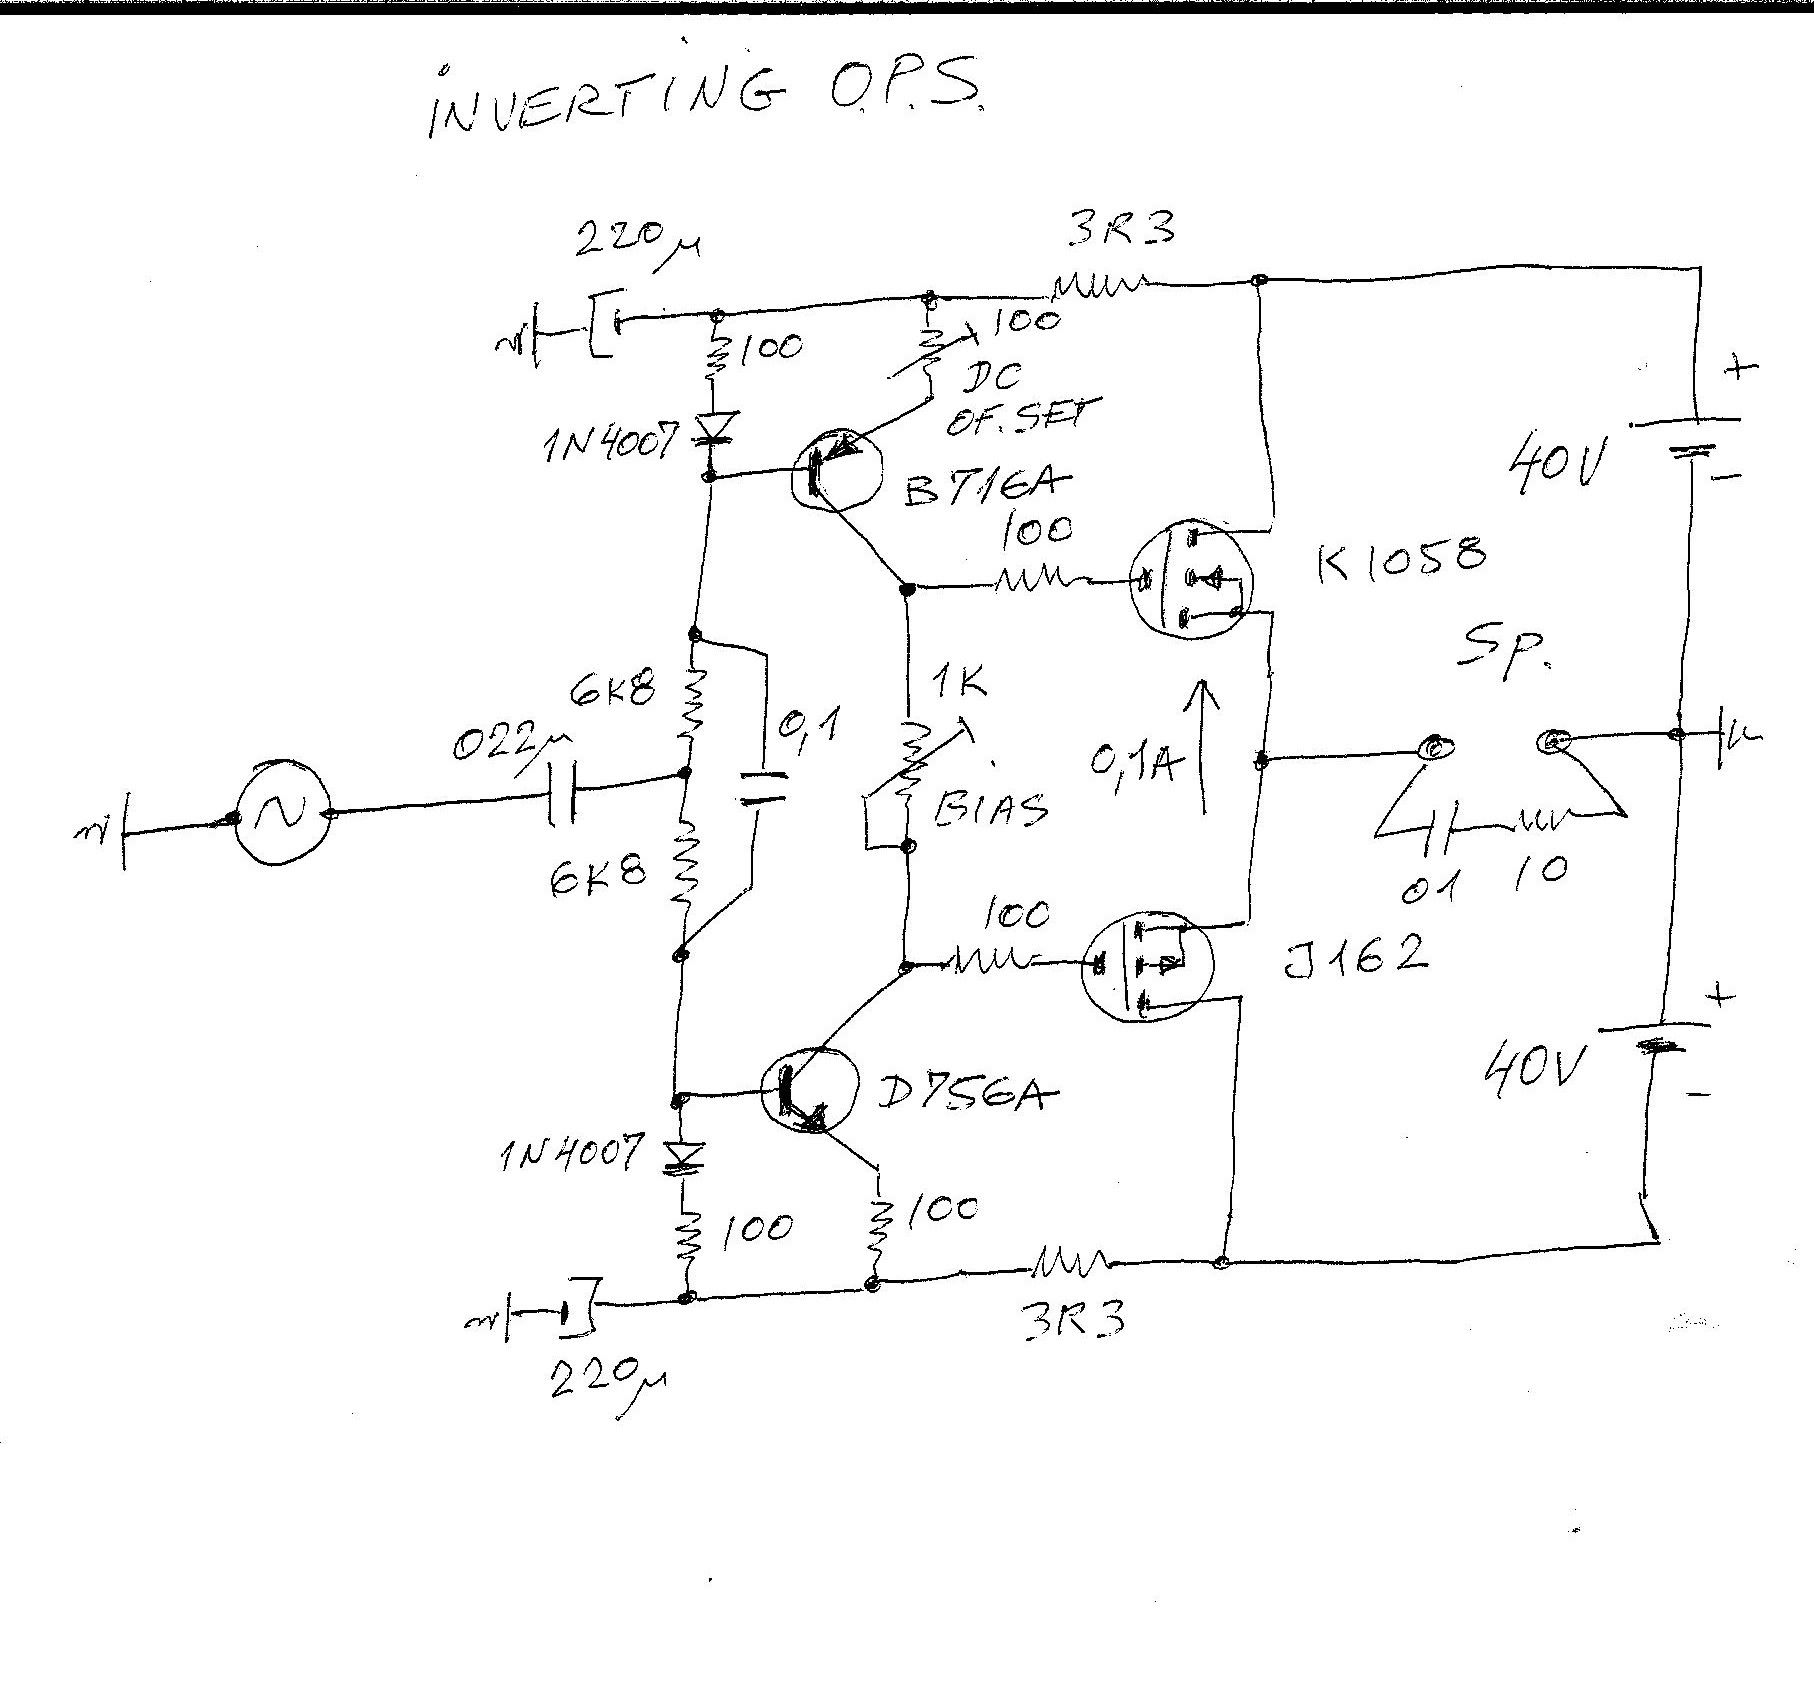 INVERTING O.P.S.
220µ
3R3
100
100
DC
OF.SET
1N4007
B716A
100
K1058
+
40V
-
Sp.
6K8
1K
022µ
0,1
0,1A
BIAS
6K8
01
10
100
J162
+
40V
-
D756A
1N4007
100
100
3R3
220µ